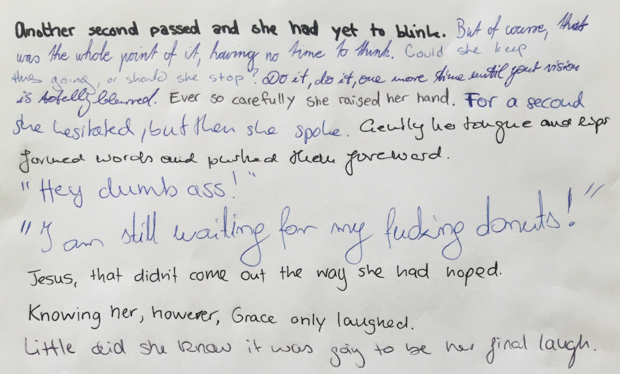 Another second passed and she had yet to blink. But of course, that
was the whole point of it, having no time to think. Could she keep
this going, or should she stop? Do it, do it, one more time until your vision
is totally blurred. Ever so carefully she raised her hand. For a second
she hesitated, but then she spoke. Gently her tongue and lips
formed words and pushed them foreward.
"Hey dumb ass!"
"I am still waiting for my fucking donuts!"
Jesus, that didn't come out the way she had hoped.
Knowing her, however, Grace only laughed.
Little did she know it was going to be her final laugh.